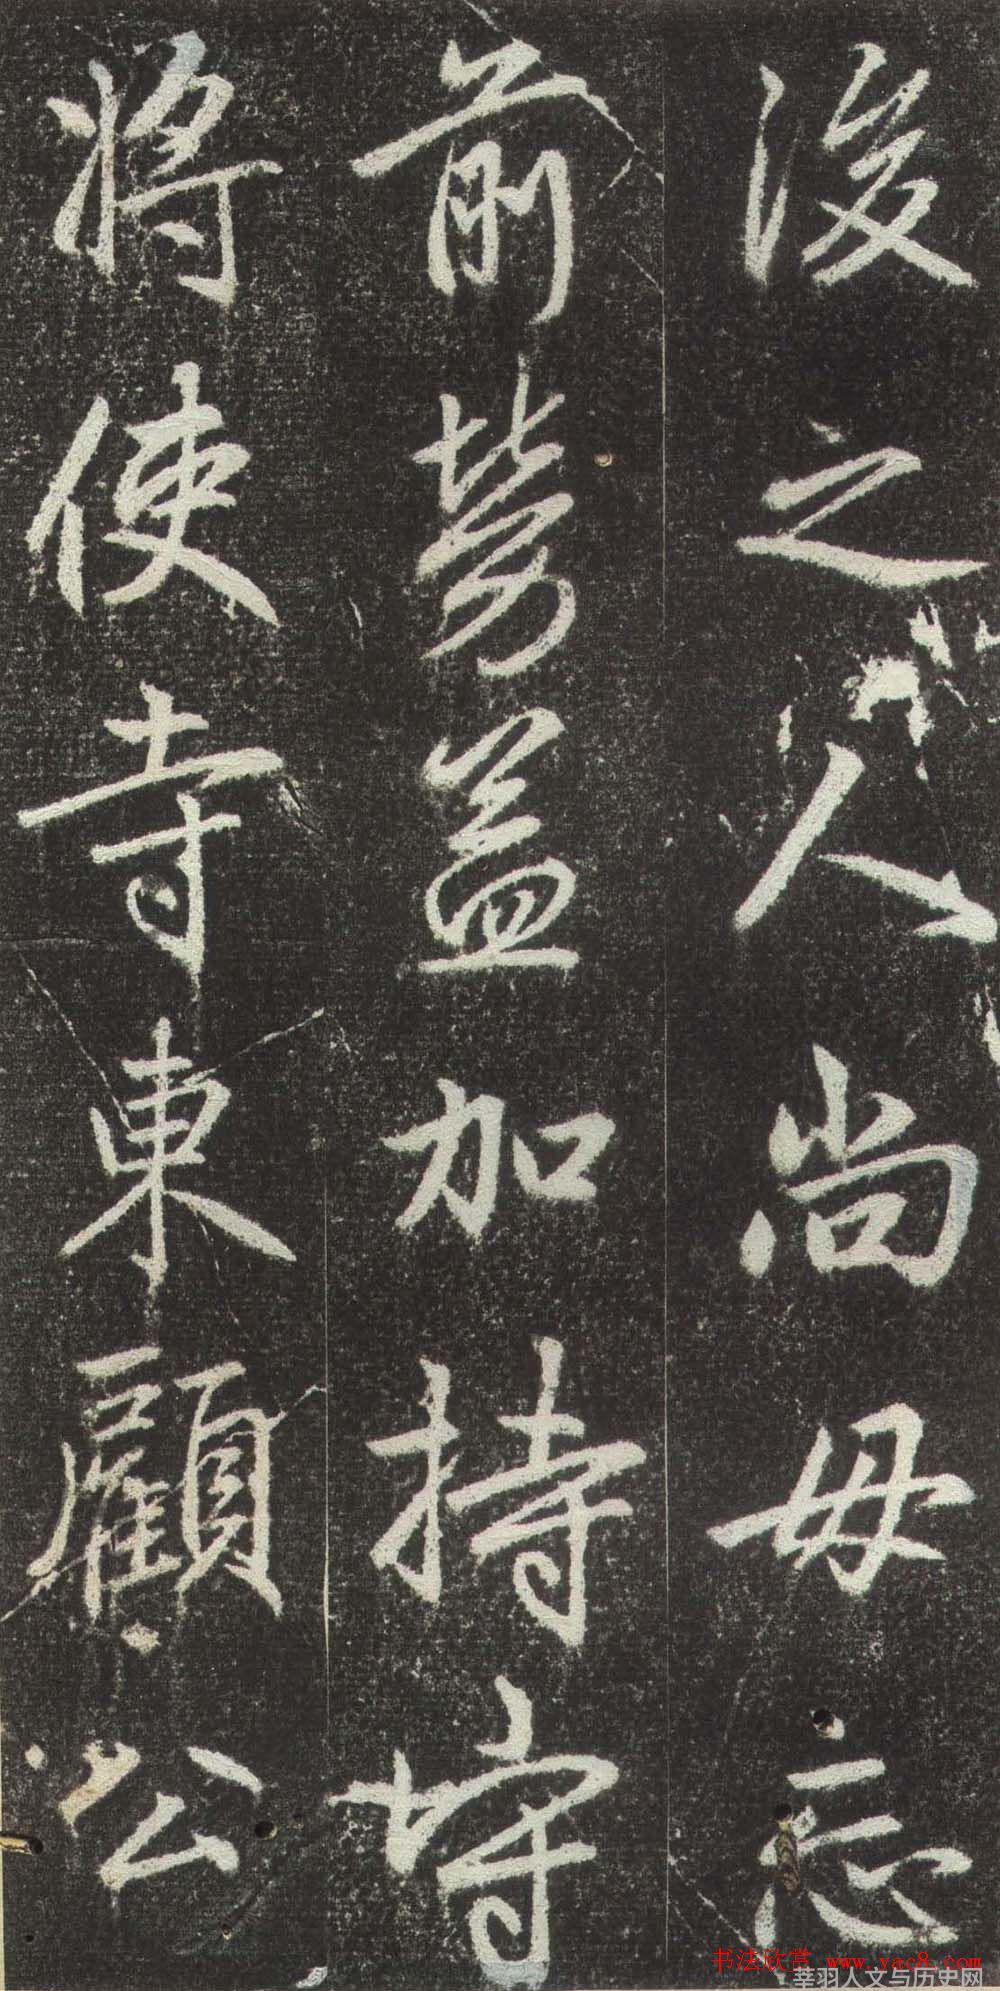 後之人尚毋忘
前勞益加持守
將使寺東顧公
书法欣赏 www.yac8.com
莘羽人文与历史网